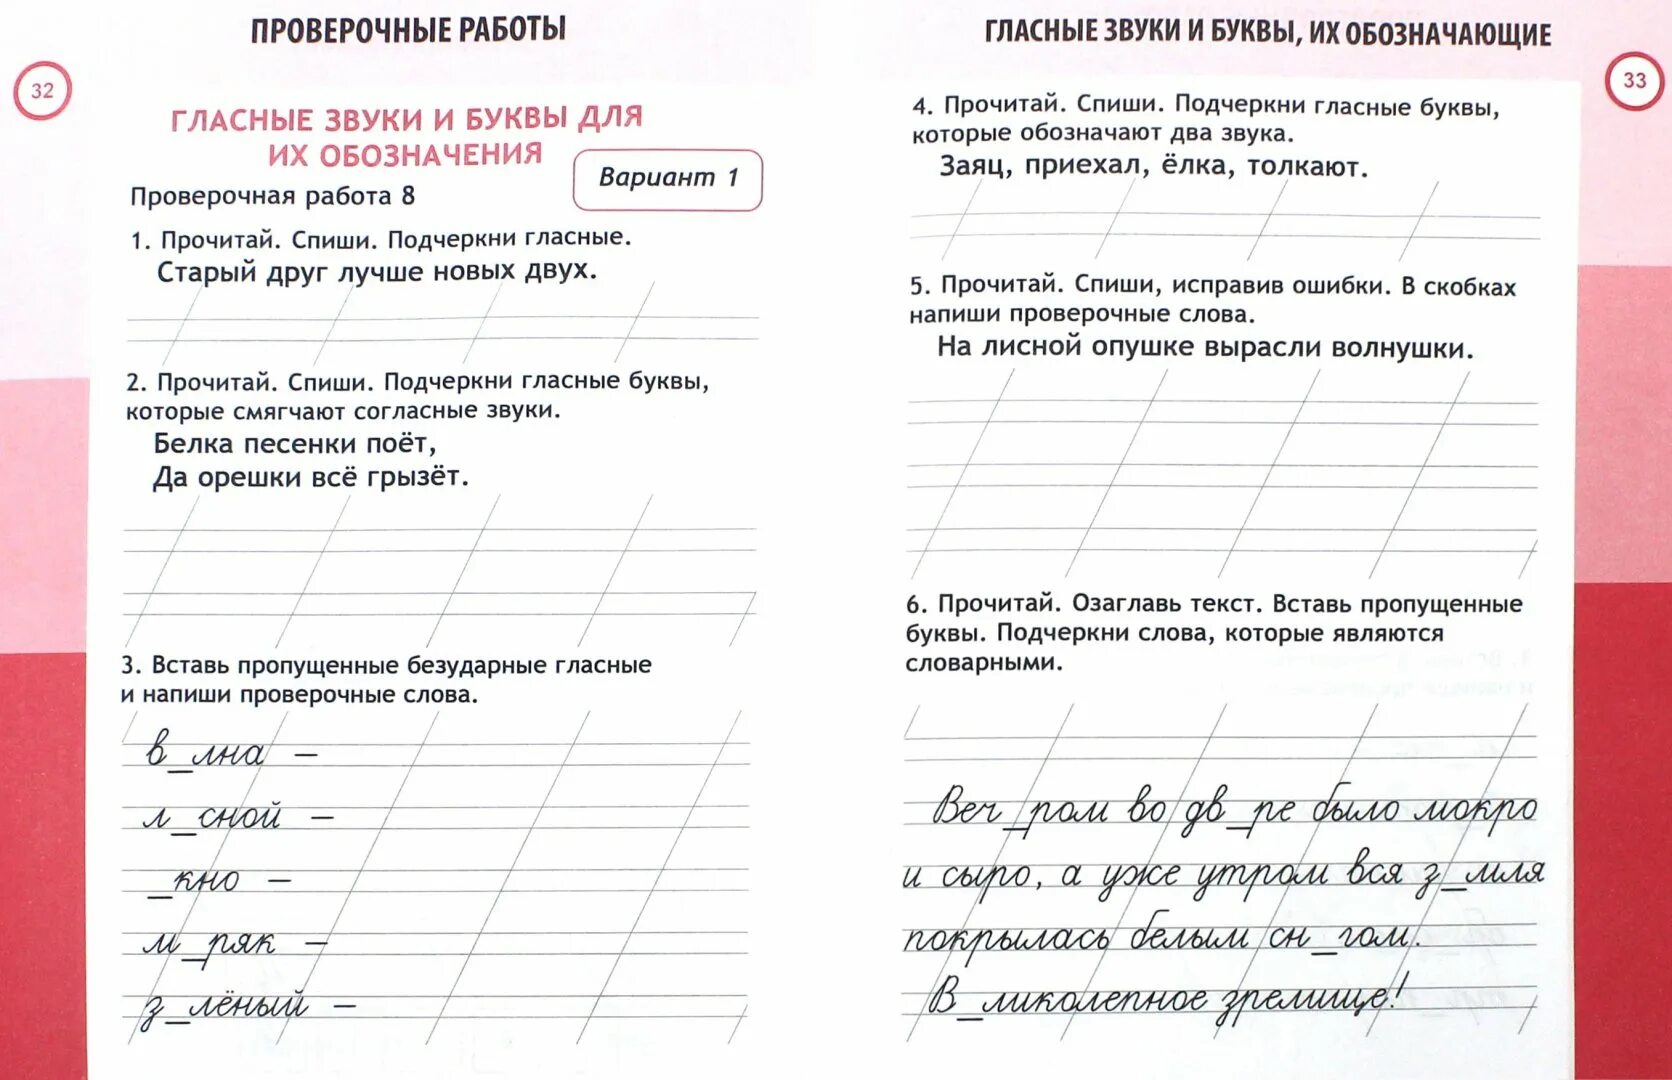 ПРОВЕРОЧНЫЕ РАБОТЫ
32
ГЛАСНЫЕ ЗВУКИ И БУКВЫ ДЛЯ
ИХ ОБОЗНАЧЕНИЯ
Вариант 1
Проверочная работа 8
1. Прочитай. Спиши. Подчеркни гласные.
Старый друг лучше новых двух.
2. Прочитай. Спиши. Подчеркни гласные буквы,
которые смягчают согласные звуки.
Белка песенки поёт,
Да орешки всё грызёт.
3. Вставь пропущенные безударные гласные
и напиши проверочные слова.
в_лна –
л_сной –
_кно –
м_ряк –
з_лёный –
ГЛАСНЫЕ ЗВУКИ И БУКВЫ, ИХ ОБОЗНАЧАЮЩИЕ
33
4. Прочитай. Спиши. Подчеркни гласные буквы,
которые обозначают два звука.
Заяц, приехал, ёлка, толкают.
5. Прочитай. Спиши, исправив ошибки. В скобках
напиши проверочные слова.
На лисной опушке вырасли волнушки.
6. Прочитай. Озаглавь текст. Вставь пропущенные
буквы. Подчеркни слова, которые являются
словарными.
Веч_ром во дв_ре было мокро
и сыро, а уже утром вся з_мля
покрылась белым сн_гом.
В_ликолепное зрелище!